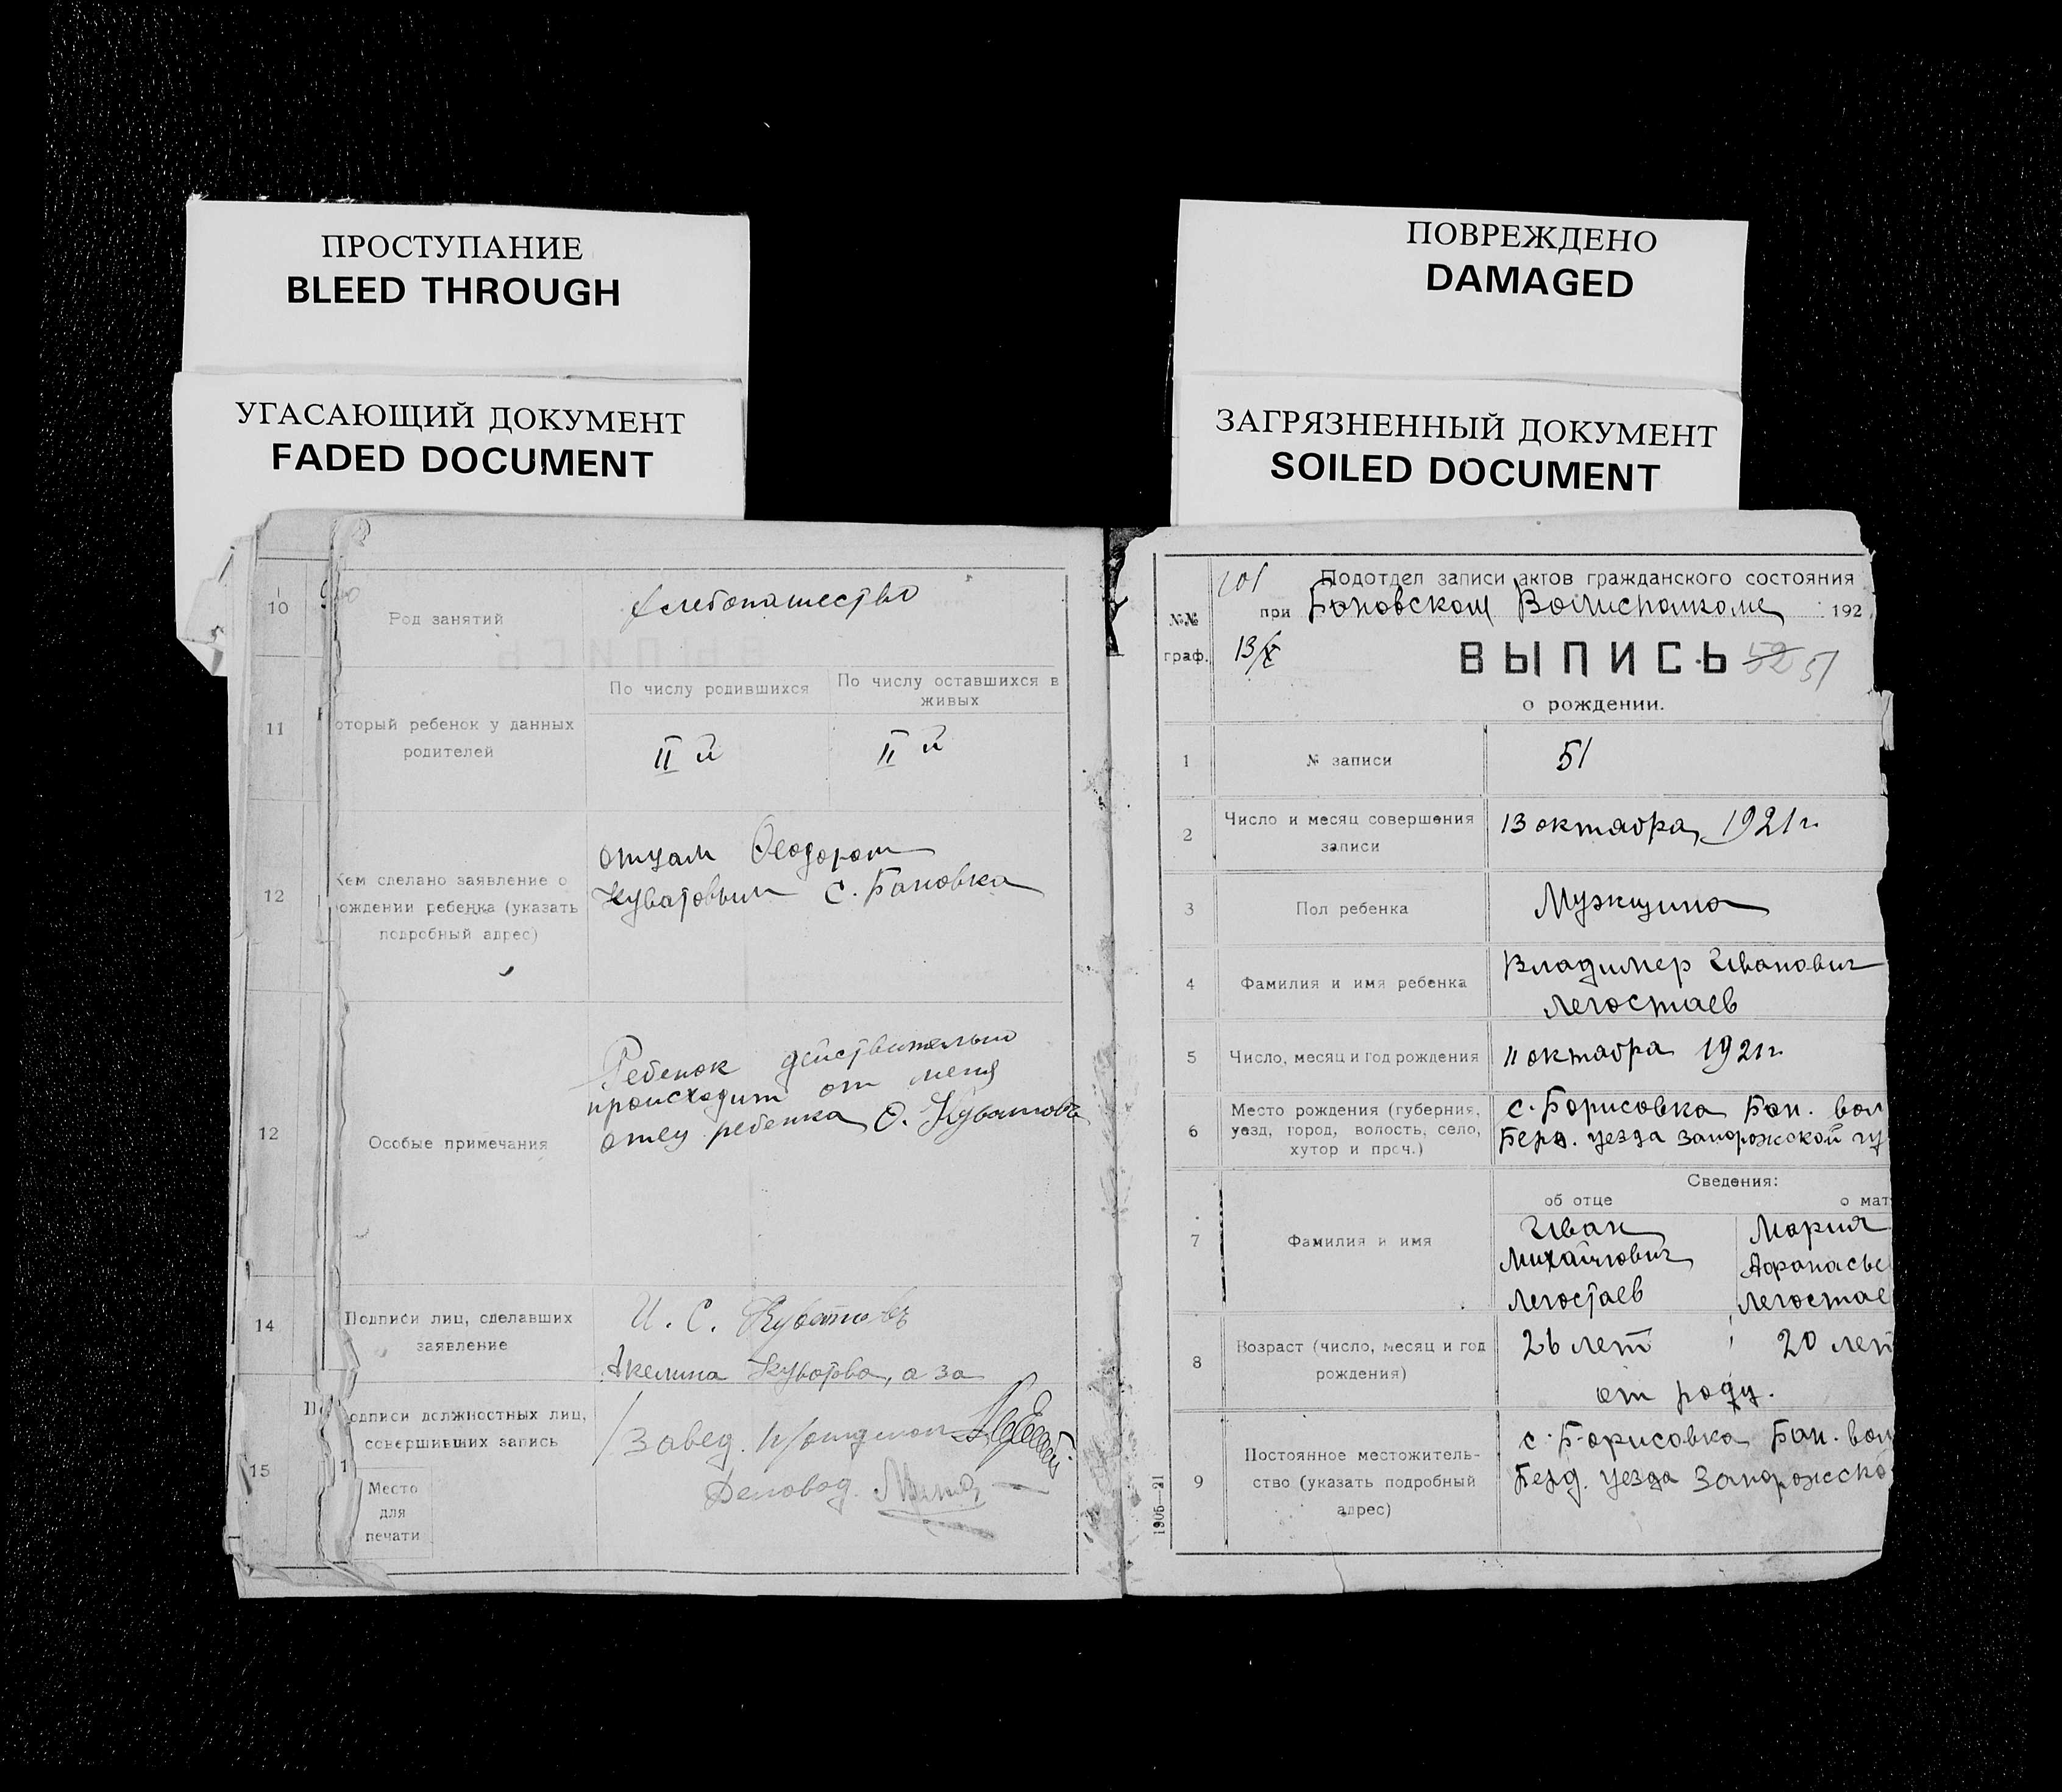 ПРОСТУПАНИЕ
BLEED THROUGH
УГАСАЮЩИЙ ДОКУМЕНТ
FADED DOCUMENT
ПОВРЕЖДЕНО
DAMAGED
ЗАГРЯЗНЕННЫЙ ДОКУМЕНТ
SOILED DOCUMENT
10
Род занятий
хлебопашество
11
оторый ребенок у данных
родителей
По числу родившихся
По числу оставшихся в
живых
II й
II й
12
Кем сделано заявление о
ождении ребенка (указать
подробный адрес)
отцам Феодором
Куватовым с. Бановка
12
Особые примечания
Ребенок действительно
происходит от меня
отец ребенка Ф. Куватовъ
14
Подписи лиц, сделавших
заявление
И. С. Куватовъ
Акелина Куватова, а за
15
одписи должностных лиц,
совершивших запись
Завед.
Деловод.
Место
для
печати
№№
граф.
101
13/X
Подотдел записи актов гражданского состояния
при Бановском Волисполкоме 192
ВЫПИСЬ 52 51
о рождении.
1
№ записи
51
2
Число и месяц совершения
записи
13 октабра, 1921 г.
3
Пол ребенка
Мужщина
4
Фамилия и имя ребенка
Владимер Иванович
Легостаев
5
Число, месяц и год рождения
11 октабра 1921 г.
6
Место рождения (губерния,
уезд, город, волость, село,
хутор и проч.)
с. Борисовка Бан. вол
Берд. уезда Запорожской гу
Сведения:
об отце
о мат
7
Фамилия и имя
Иван
Михайлович
Легостаев
Мария
Афанасье
Легостае
8
Возраст (число, месяц и год
рождения)
26 лет
20 лет
от роду.
9
Постоянное местожитель-
ство (указать подробный
адрес)
с. Борисовка Бан. вол
Берд. уезда Запорожско
1906—21